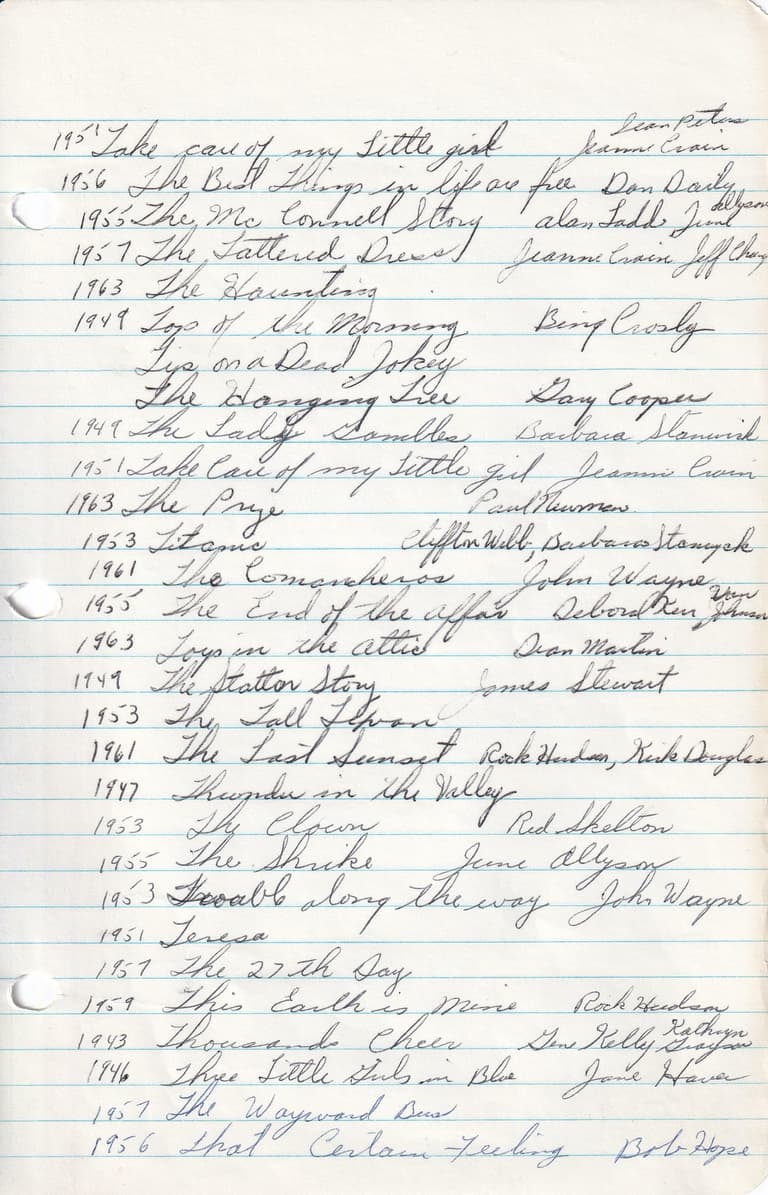 1951 Take care of my Little girl Jean Peters Jeanne Crain
1956 The Best Things in life are free Dan Daily
1955 The Mc Connell Story alan Ladd June allyson
1957 The Tattered Dress Jeanne Crain Jeff Chang
1963 The Haunting
1949 Top of the Morning Bing Crosby
Tip on a Dead Jokey
The Hanging Tree Gary Cooper
1949 The Lady Gambles Barbara Stanwick
1951 Take Care of my Little girl Jeanne Crain
1963 The Prize Paul Newman
1953 Titanic Cliffton Webb, Barbara Stanwyck
1961 The Comancheros John Wayne
1955 The End of the affar Debora Kerr Van Johnson
1963 Toys in the attic Dean Martin
1949 The Stattor Story James Stewart
1953 The Tall
1961 The Last Sunset Rock Hudson, Kirk Douglas
1947 Thunder in the Valley
1953 The Clown Red Skelton
1955 The Shrike June Allyson
1953 Trouble along the way John Wayne
1951 Teresa
1957 The 27th Day
1959 This Earth is Mine Rock Hudson
1943 Thousands Cheer Gene Kelly Kathryn Grayson
1946 Three Little Girls in Blue June Haver
1957 The Wayward Bus
1956 That Certain Feeling Bob Hope